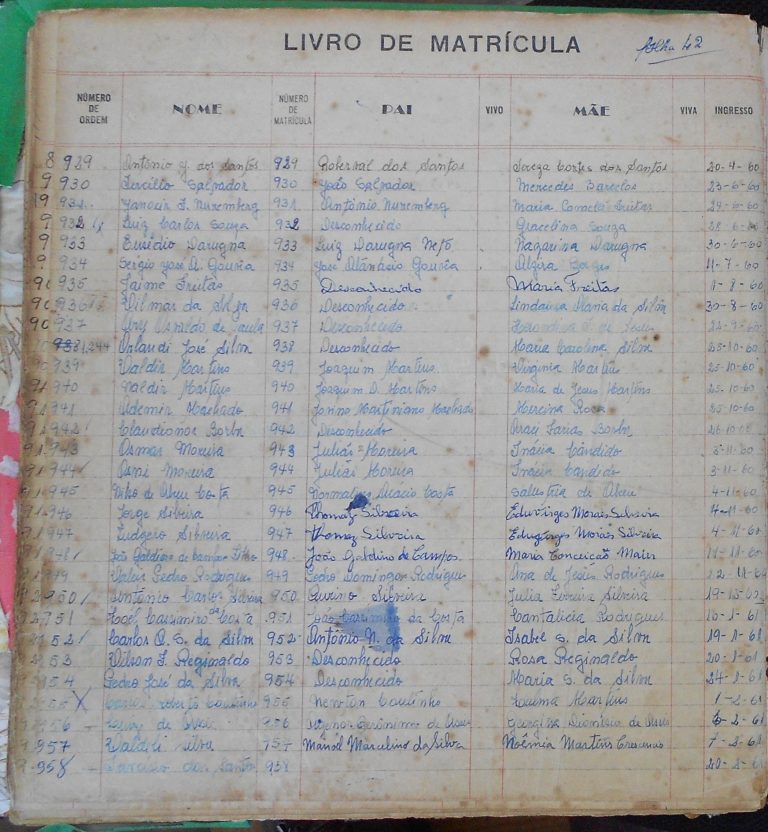 LIVRO DE MATRÍCULA folha 42
NÚMERO DE ORDEM NOME NÚMERO DE MATRÍCULA PAI VIVO MÃE VIVA INGRESSO
929 Antônio dos Santos 929 Roberval dos Santos Tereza Cortes dos Santos 20-4-60
930 Tercilio Salvador 930 João Salvador Mercedes Barcelos 23-6-60
931 Nuremberg 931 Antônio Nuremberg Maria Freitas
932 Luiz Carlos Souza 932 Desconhecido Gracelina Souza
933 Eusébio Darugna 933 Luiz Darugna Neto Nazarina Darugna 30-6-60
934 Sergio José Gouvêa 934 José Atanásio Gouvêa Alzira 11-7-60
935 Jaime Freitas 935 Desconhecido Maria Freitas 1-8-60
936 Vilmar da Silva 936 Desconhecido Lindaura Maria da Silva 30-8-60
937 Ary Osvaldo de Paula 937 Desconhecido
938 Orlandi José Silva 938 Desconhecido Maria Carolina Silva 25-10-60
939 Valdir Martins 939 Joaquim Martins Virginia Martins 25-10-60
940 Naldir Martins 940 Joaquim D. Martins Maria de Jesus Martins 25-10-60
941 Ademir Machado 941 Jovino Martiniano Machado Rosa 25-10-60
942 Claudionor Borba 942 Desconhecido Araci Farias Borba 26-10-60
943 Osmar Moreira 943 Julias Moreira Inácia Cândido 3-11-60
944 Osni Moreira 944 Julias Moreira Inácia Candido 3-11-60
945 de Abreu Costa 945 Normalino Acácio Costa de Abreu 4-11-60
946 Jorge Silveira 946 Thomaz Silveira Eduvirges Morais Silveira 4-11-60
947 Ludgero Silveira 947 Thomaz Silveira Eduvirges Morais Silveira 4-11-60
948 João Galdino de Campos Filho 948 João Galdino de Campos Maria Conceição Maier 11-11-60
949 Valdir Pedro Rodrigues 949 Pedro Domingos Rodrigues Ana de Jesus Rodrigues 12-11-60
950 Antônio Carlos Silveira 950 Quirino Silveira Julia Ferreira Silveira 19-12-60
951 Casemiro da Costa 951 João Casemiro da Costa Cantalicia Rodrigues 16-1-61
952 Carlos A. S. da Silva 952 Antônio N. da Silva Isabel S. da Silva 19-1-61
953 Wilson F. Reginaldo 953 Desconhecido Rosa Reginaldo 20-1-61
954 Pedro José da Silva 954 Desconhecido Maria S. da Silva 24-1-61
955 Roberto Coutinho 955 Newton Coutinho Martins 1-2-61
956 956 Jerônimo de Georgina Dionisia de 6-2-61
957 Valdeli Silva 957 Manoel Marcelino da Silva Noêmia Martins 7-2-61
958 dos Santos 958 20-2-61